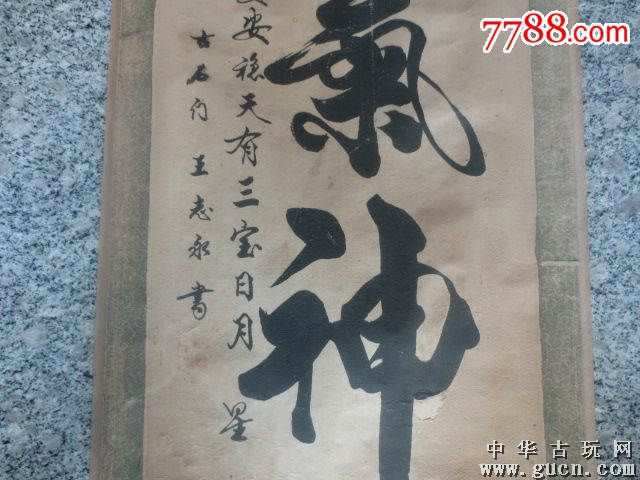 氣神
安穩天有三宝日月星
古石门 王志永書
7788.com
中华古玩网
www.gucn.com